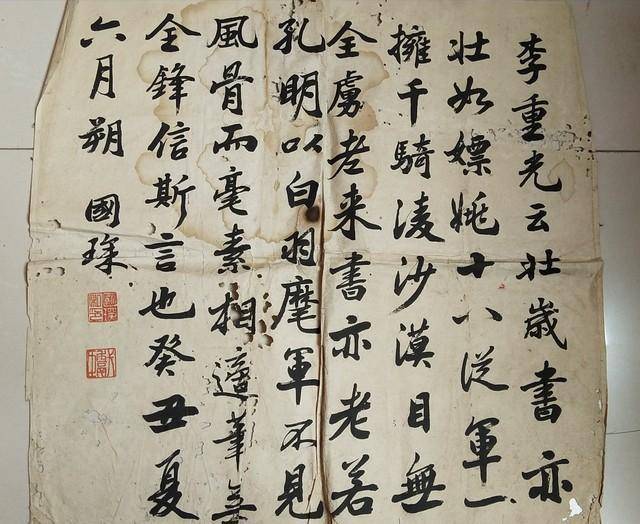 李重光云壮歲書亦
壮如嫖姚十八從軍一
擁千騎凌沙漠目無
全虜老来書亦老若
孔明以白羽麾軍不見
風骨而毫素相適筆無
全鋒信斯言也癸丑夏
六月朔 國琛